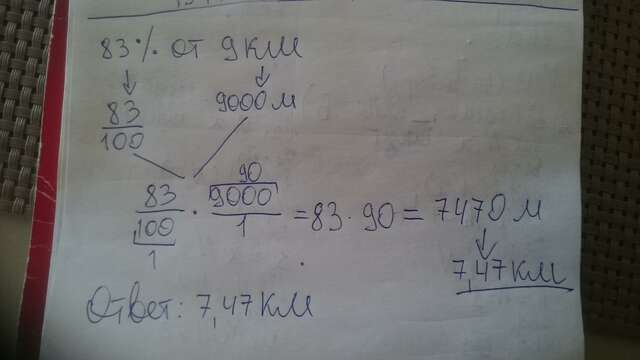 83% от 9 км
83/100 9000 м
90
83/100 · 9000/1 = 83 · 90 = 7470 м
1
7,47 км
Ответ: 7,47 км